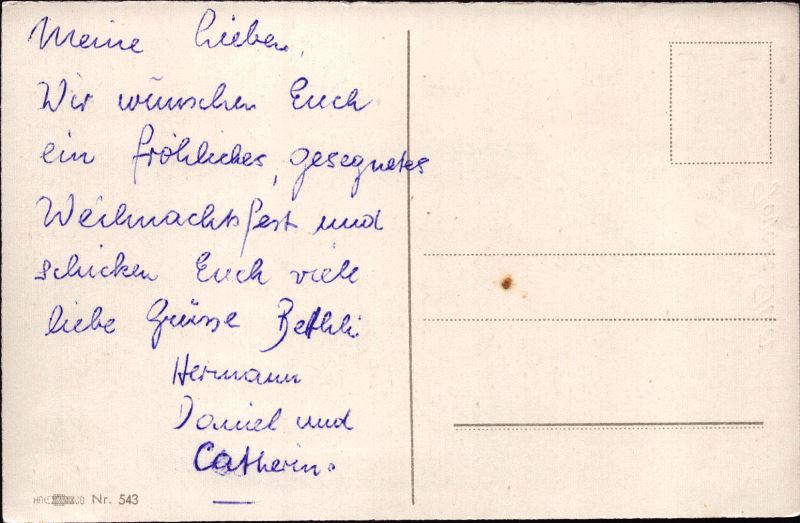 Meine Lieben,
Wir wünschen Euch
ein fröhliches, gesegnetes
Weihnachtsfest und
schicken Euch viele
liebe Grüsse Bethli
Hermann
Daniel und
Catherin.
Nr. 543